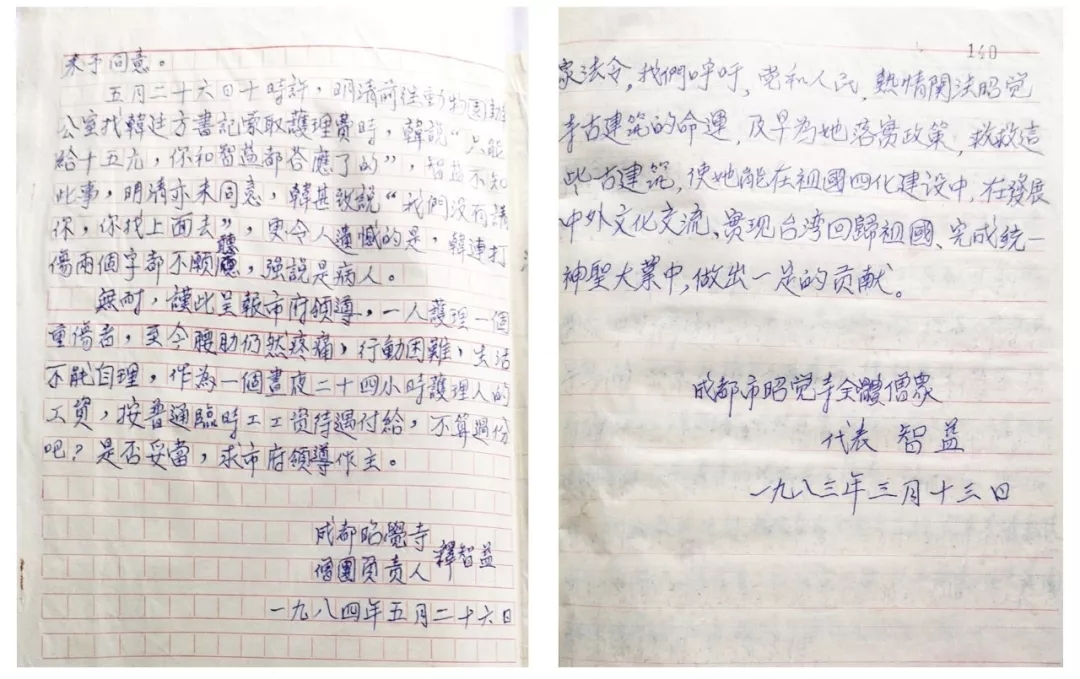 未予同意。
五月二十六日十時許，明清前往動物園辦
公室找韓廷方書記索取護理費時，韓說“只能
給十五元，你和智益都答應了的”，智益不知
此事，明清亦未同意，韓甚致說“我們没有請
你，你找上面去”，更令人遺憾的是，韓連打
傷兩個字都不願聽，强說是病人。
無耐，謹此呈報市府領導，一人護理一個
重傷者，至今腰肋仍然疼痛，行動困難，生活
不能自理，作為一個晝夜二十四小時護理人的
工資，按普通臨時工工资待遇付給，不算過份
吧？是否妥當，求市府領導作主。
成都昭覺寺
僧團負责人 釋智益
一九八四年五月二十六日
140
家法令，我們呼吁，党和人民，熱情関法昭觉
寺古建筑的命運，及早為她落實政策，救救這
些古建筑，使她能在祖國四化建设中，在發展
中外文化交流、實现台湾回歸祖國、完成统一
神聖大業中，做出一定的贡献。
成都市昭觉寺全體僧眾
代表 智益
一九八三年三月十三日